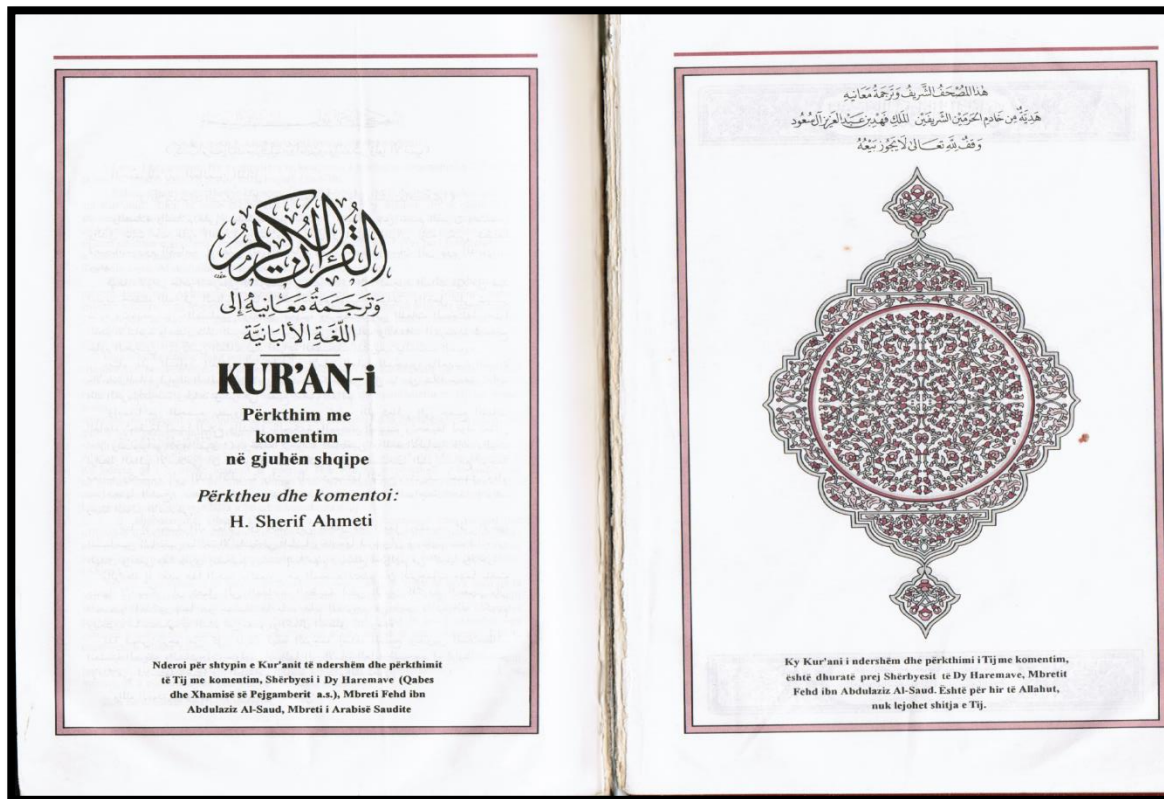 القرآن الكريم
وَتَرجَمَة مَعَانِيهِ إلى
اللّغَةِ الألبَانيَّة
KUR'AN-i
Përkthim me
komentim
në gjuhën shqipe
Përktheu dhe komentoi:
H. Sherif Ahmeti
Nderoi për shtypin e Kur'anit të ndershëm dhe përkthimit
të Tij me komentim, Shërbyesi i Dy Haremave (Qabes
dhe Xhamisë së Pejgamberit a.s.), Mbreti Fehd ibn
Abdulaziz Al-Saud, Mbreti i Arabisë Saudite
هٰذَا المُصْحَفُ الشَّرِيفُ وَتَرجَمَةُ مَعَانِيهِ
هَدِيَّةٌ مِن خَادِمِ الحَرَمَيْنِ الشَّرِيفَيْنِ المَلِكِ فَهدِ بن عَبدِ العَزِيزِ آل سُعُود
وَقفٌ لِلّهِ تَعَالىٰ لَا يَجُوز بَيْعُهُ
Ky Kur'ani i ndershëm dhe përkthimi i Tij me komentim,
është dhuratë prej Shërbyesit të Dy Haremave, Mbretit
Fehd ibn Abdulaziz Al-Saud. Është për hir të Allahut,
nuk lejohet shitja e Tij.